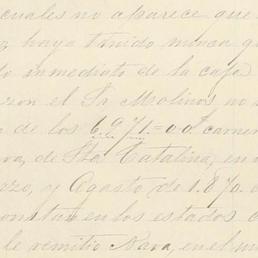 cuales no aparece que
haya tenido nunca
inmediato de la caja
el Sr Molinos no
de los 6,971=00 carner
de Sta Catalina, en
y Agosto de 1.870.
constan en los estados
le remitio Nava, en el m